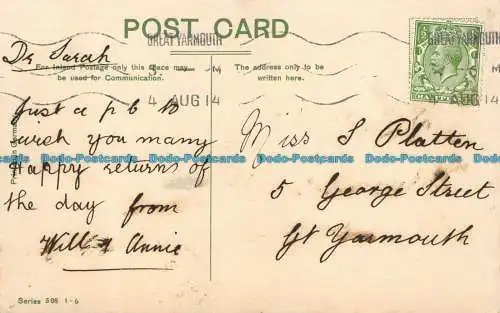 POST CARD
For Inland Postage only this Space may
be used for Communication.
The address only to be
written here.
GREAT YARMOUTH
4 AUG 14
Dr Sarah
Just a p c to
wish you many
Happy returns of
the day from
Will & Annie
Miss S Platten
5 George Street
Gt Yarmouth
Series 508 1-6
Dodo-Postcards Dodo-Postcards Dodo-Postcards Dodo-Postcards